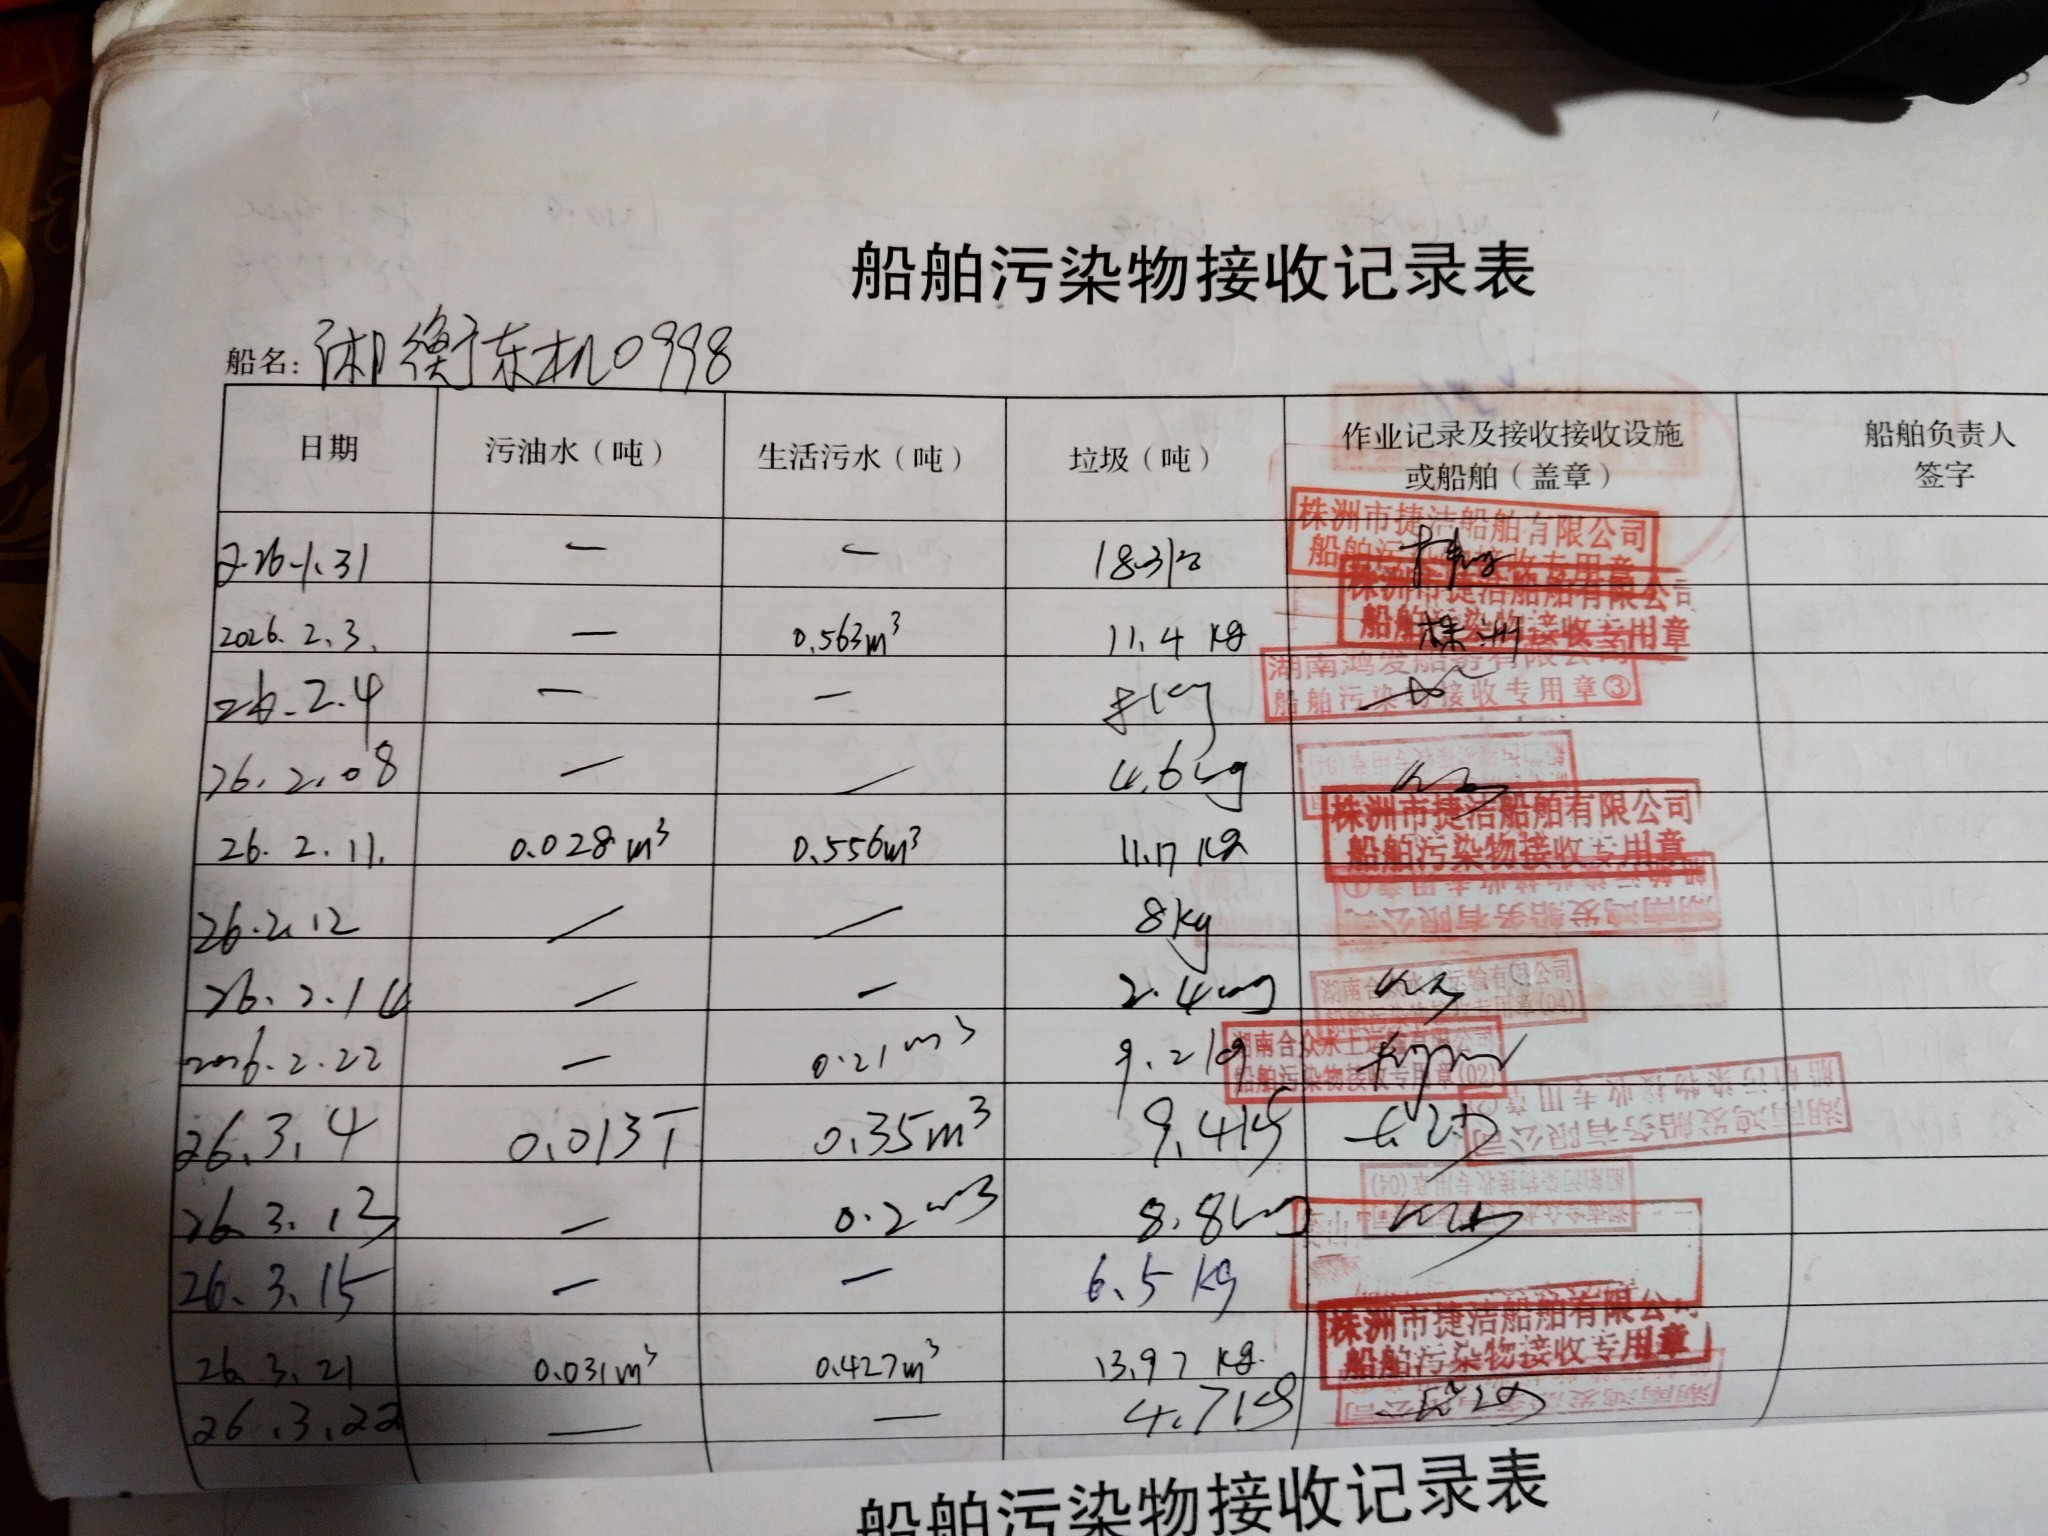 船舶污染物接收记录表
船名: 湘衡东机0998
日期 污油水（吨） 生活污水（吨） 垃圾（吨） 作业记录及接收接收设施 船舶负责人
或船舶（盖章） 签字
1.31 — — 18.3
株洲市捷洁船舶有限公司
船舶污染物接收专用章
2026.2.3. — 0.563m³ 11.4 kg 株洲
株洲市捷洁船舶有限公司
船舶污染物接收专用章
26.2.4 — — 8kg
湖南鸿发船务有限公司
船舶污染物接收专用章③
26.2.08 — — 4.6kg
26.2.11. 0.028m³ 0.556m³ 11.17 kg
株洲市捷洁船舶有限公司
船舶污染物接收专用章
26.2.12 — — 8kg
湖南鸿发船务有限公司
船舶污染物接收专用章①
26.2.14 — — 2.4kg
湖南合众水上运输有限公司
船舶污染物接收专用章(04)
2026.2.22 — 0.21m³ 9.2kg
湖南合众水上运输有限公司
船舶污染物接收专用章(02)
26.3.4 0.013T 0.35m³ 9.4kg
湖南鸿发船务有限公司
船舶污染物接收专用章
26.3.13 — 0.2m³ 8.8kg
船舶污染物接收专用章(04)
26.3.15 — — 6.5kg
26.3.21 0.031m³ 0.427m³ 13.97 kg
株洲市捷洁船舶有限公司
船舶污染物接收专用章
26.3.22 — — 4.7kg
船舶污染物接收记录表